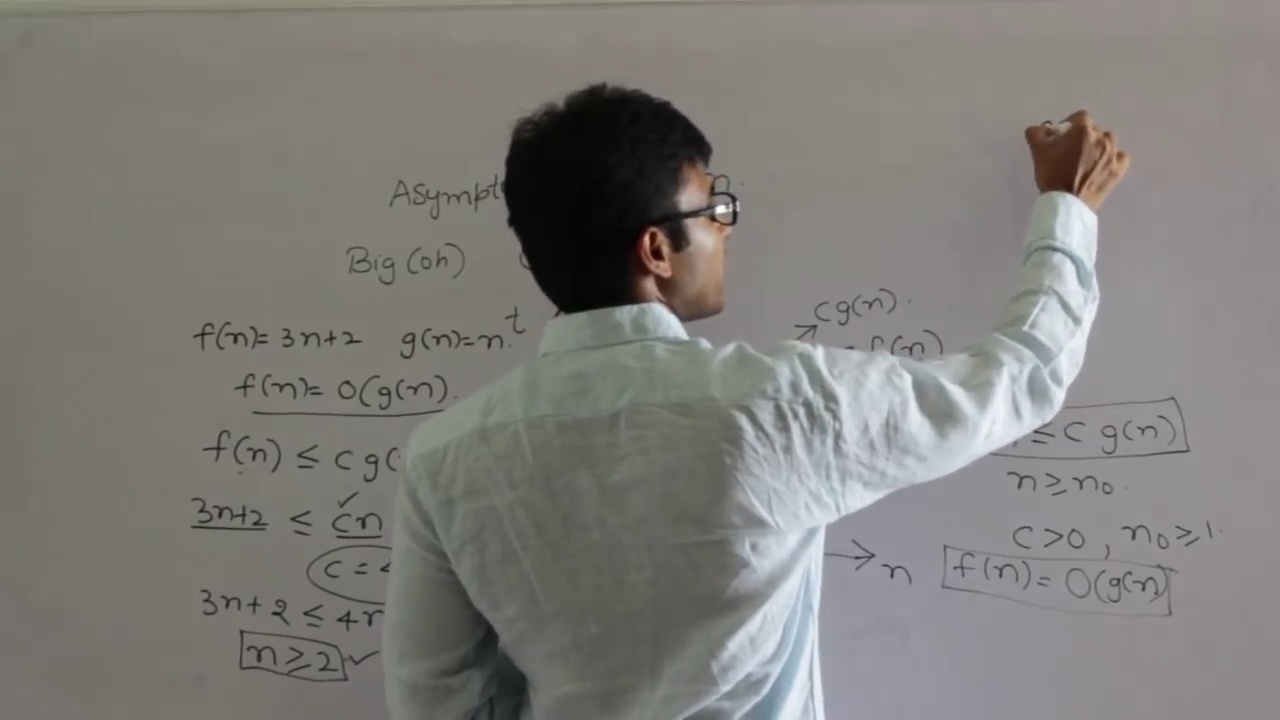 Big (oh)
f(n)= 3n+2 g(n)=n.
f(n)= O(g(n).
f(n) ≤ c g(
3n+2 ≤ cn
c =
3n+2 ≤ 4n
n ≥ 2
cg(n).
f(n)
n
≤ c g(n)
n ≥ n0.
c>0 , n0 ≥ 1.
f(n)= O(g(n)